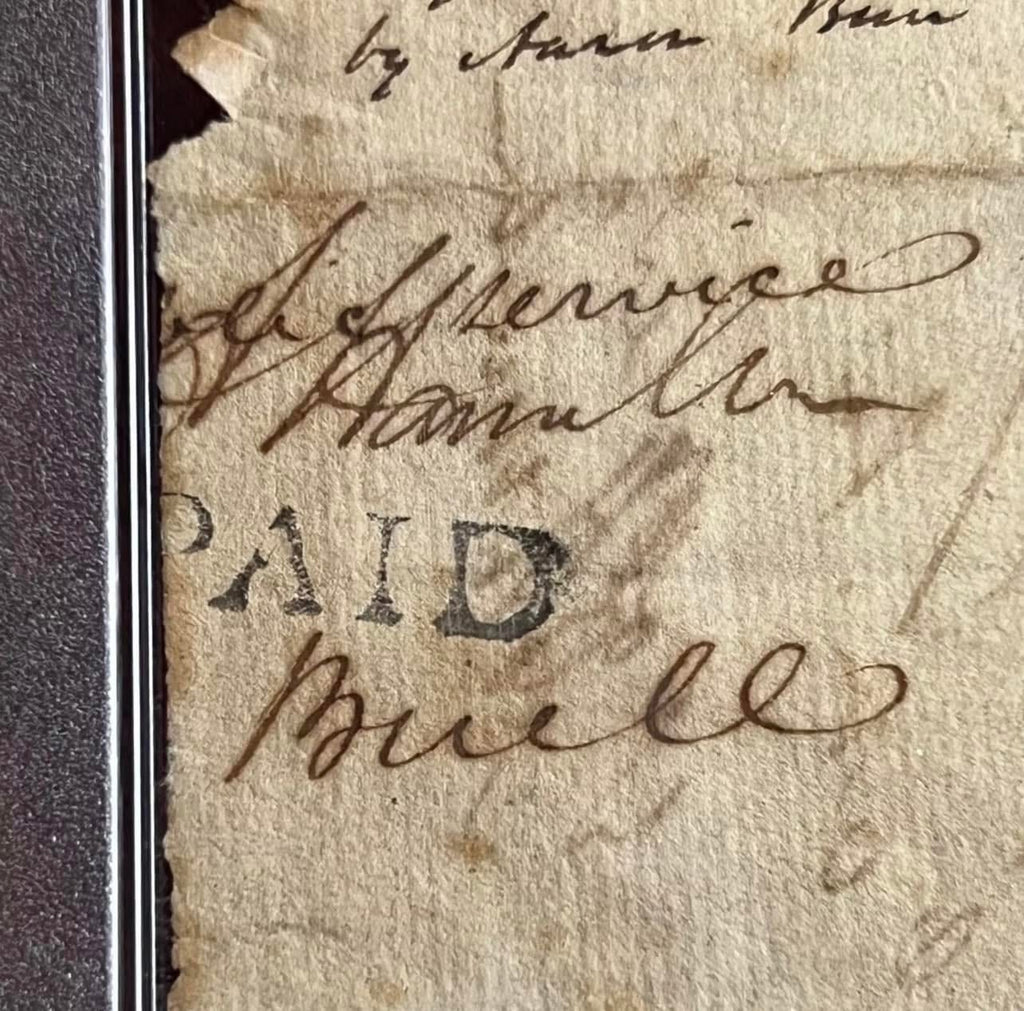 by Aaron Burr
service
A Hamilton
PAID
Buell